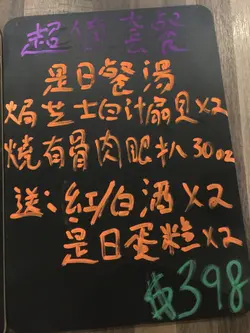 超值套餐
是日餐湯
焗芝士白汁扇貝X2
燒有骨肉眼扒30oz
送:紅/白酒X2
是日蛋糕X2
$398